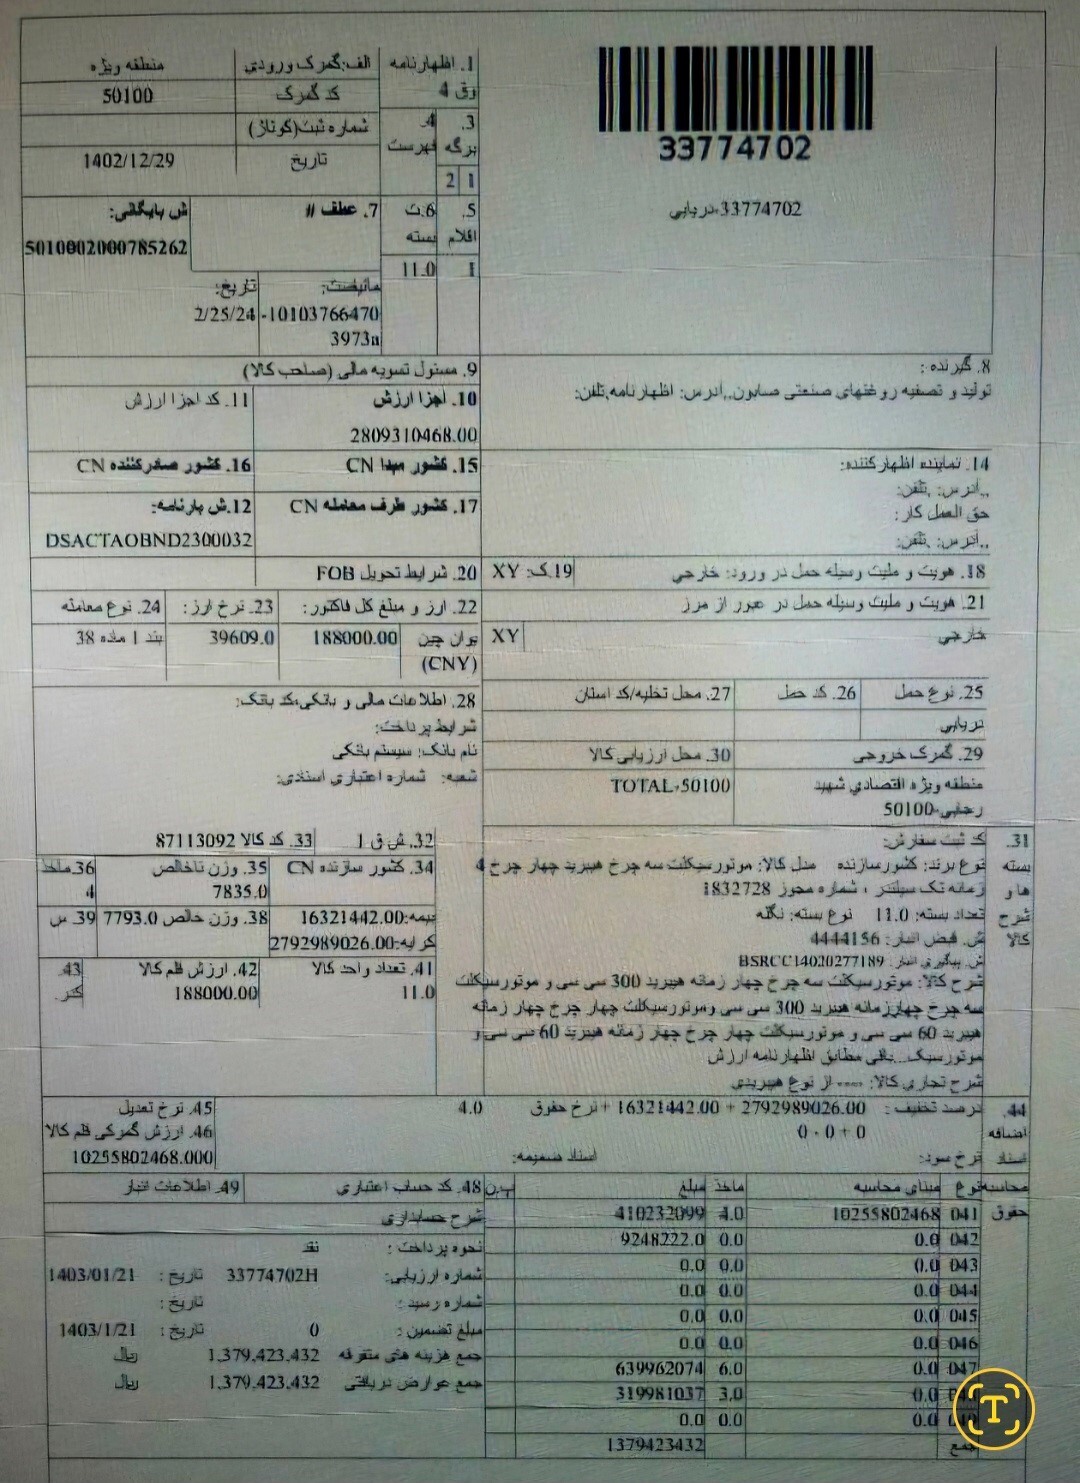 33774702
33774702-دریایی
1. اظهارنامه
الف:گمرک ورودی
منطقه ویژه
ورق 4
کد گمرک
50100
3. برگه
4. فهرست
شماره ثبت(کوتاژ)
تاریخ
1402/12/29
1 2
5. اقلام
6.ت بسته
7. عطف #
ش بایگانی:
5010002000785262
1
11.0
مانیفست:
تاریخ:
10103766470-
2/25/24
3973a
8. گیرنده :
تولید و تصفیه روغنهای صنعتی صابون,,آدرس: اظهارنامه,تلفن:
9. مسئول تسویه مالی (صاحب کالا)
10. اجزا ارزش
11. کد اجزا ارزش
2809310468.00
14. نماینده اظهارکننده:
,,آدرس: ,تلفن:
حق العمل کار:
,,آدرس: ,تلفن:
15. کشور مبدا CN
16. کشور صادرکننده CN
17. کشور طرف معامله CN
12.ش بارنامه:
DSACTAOBND2300032
18. هویت و ملیت وسیله حمل در ورود: خارجي
19.ک: XY
20. شرایط تحویل FOB
21. هویت و ملیت وسیله حمل در عبور از مرز
خارجي
XY
22. ارز و مبلغ کل فاکتور:
23. نرخ ارز:
24. نوع معامله
یوان چین
(CNY)
188000.00
39609.0
بند 1 ماده 38
25. نوع حمل
26. کد حمل
27. محل تخلیه/کد استان
دریایي
28. اطلاعات مالی و بانکی،کد بانک:
شرایط پرداخت:
نام بانک: سیستم بانکی
شعبه: شماره اعتباری اسنادی:
29. گمرک خروجی
30. محل ارزیابی کالا
منطقه ویژه اقتصادي شهید
رجایی-50100
TOTAL-50100
31. بسته ها و شرح کالا
کد ثبت سفارش:
نوع برند: کشورسازنده مدل کالا: موتورسیکلت سه چرخ هیبرید چهار چرخ 4
زمانه تک سیلندر ، شماره مجوز 1832728
تعداد بسته: 11.0 نوع بسته: نگله
ش. قبض انبار: 4444156
ش. پیگیری انبار: BSRCC14020277189
شرح کالا: موتورسیکلت سه چرخ چهار زمانه هیبرید 300 سی سی و موتورسیکلت
سه چرخ چهارزمانه هیبرید 300 سی سی وموتورسیکلت چهار چرخ چهار زمانه
هیبرید 60 سی سی و موتورسیکلت چهار چرخ چهار زمانه هیبرید 60 سی سی و
موتورسیک...باقی مطابق اظهارنامه ارزش
شرح تجاری کالا: ---- از نوع هیبریدی
32. ش ق 1
33. کد کالا 87113092
34. کشور سازنده CN
35. وزن ناخالص
7835.0
36.ماخذ
4
بیمه:16321442.00
کرایه:2792989026.00
38. وزن خالص 7793.0
39. س
41. تعداد واحد کالا
11.0
42. ارزش قلم کالا
188000.00
43.
44. اضافه اسناد
درصد تخفیف : 2792989026.00 + 16321442.00 + نرخ حقوق
4.0
0 + 0 - 0
نرخ سود:
اسناد ضمیمه:
45. نرخ تعدیل
46. ارزش گمرکی قلم کالا
10255802468.000
محاسبه حقوق
نوع
مبنای محاسبه
ماخذ
مبلغ
پ.ن
48. کد حساب اعتباری
49. اطلاعات انبار
041 10255802468 4.0 410232099
042 0.0 0.0 9248222.0
043 0.0 0.0 0.0
044 0.0 0.0 0.0
045 0.0 0.0 0.0
046 0.0 0.0 0.0
047 0.0 6.0 639962074
0.0 3.0 319981037
0.0 0.0 0.0
جمع 1379423432
شرح حسابداری
نحوه پرداخت : نقد
شماره ارزیابی: 33774702H تاریخ : 1403/01/21
شماره رسید : تاریخ :
مبلغ تضمین : 0 تاریخ : 1403/1/21
جمع هزینه های متفرقه 1,379,423,432 ریال
جمع عوارض دریافتی 1,379,423,432 ریال